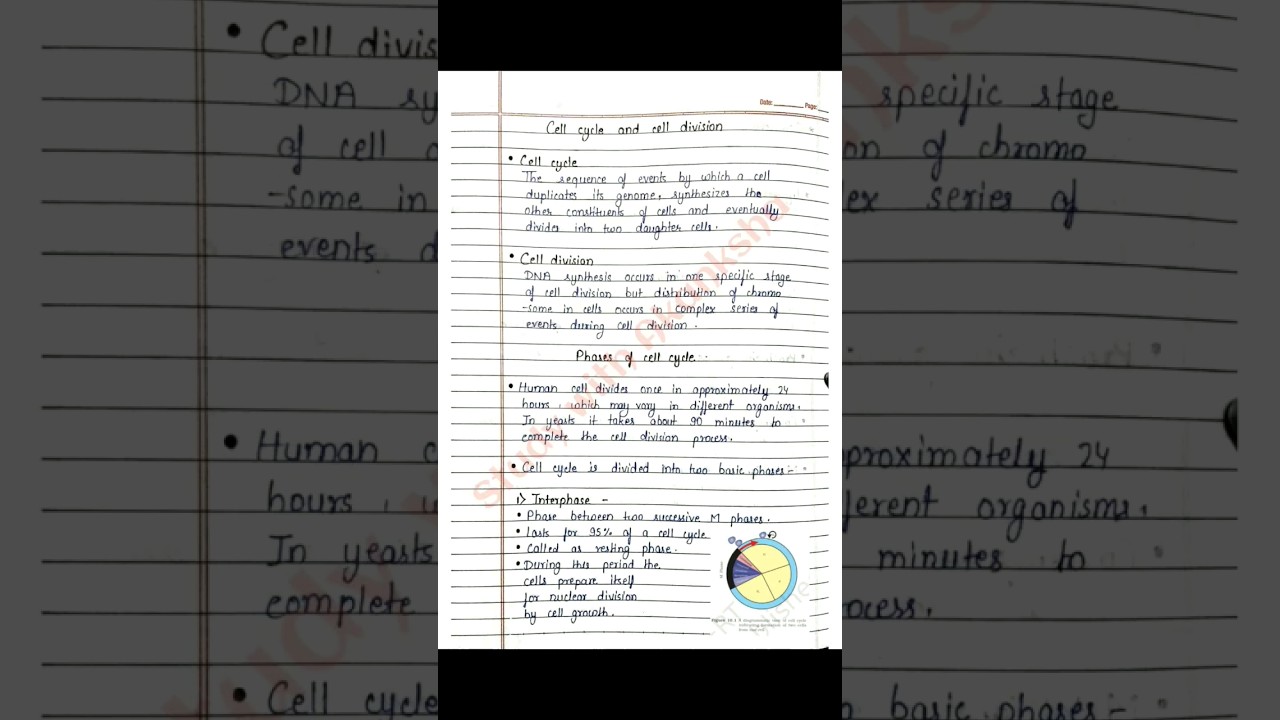 Date: Page:
Cell cycle and cell division
• Cell cycle
The sequence of events by which a cell
duplicates its genome, synthesizes the
other constituents of cells and eventually
divides into two daughter cells.
• Cell division
DNA synthesis occurs in one specific stage
of cell division but distribution of chromo
-some in cells occurs in complex series of
events during cell division.
Phases of cell cycle
• Human cell divides once in approximately 24
hours, which may vary in different organisms.
In yeasts it takes about 90 minutes to
complete the cell division process.
• Cell cycle is divided into two basic phases:-
1> Interphase -
• Phase between two successive M phases.
• Lasts for 95% of a cell cycle
• Called as resting phase.
• During this period the
cells prepare itself
for nuclear division
by cell growth.
Figure 10.1 A diagrammatic view of cell cycle
indicating formation of two cells
from one cell
Study with Akanksha